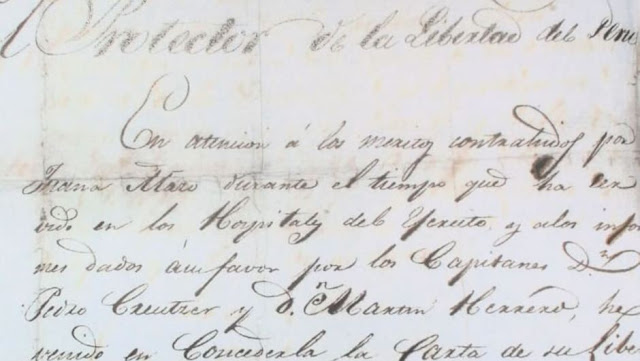 El Protector de la Libertad del Peru
En atencion á los meritos contrahidos por
Juana durante el tiempo que ha ser
vido en los Hospitales del Ejercito, y alos infor
mes dados á su favor por los Capitanes D.n
Pedro Creutzer y D.n Martin Herrero, he
venido en Concederla la Carta de su libe